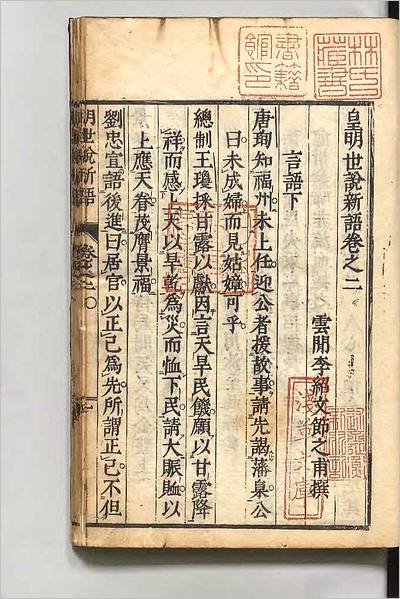 林氏藏書
書籍館印
皇明世說新語卷之二
雲閒李紹文節之甫撰
淺草文庫
言語下
唐珣知福州未上任迎公者援故事請先謁藩臬公
曰未成婦而見姑嫜可乎
總制王瓊採甘露以獻因言天旱民饑願以甘露降
祥而感上天以旱乾為災而恤下民請大賑賉以
上應天眷茂膺景福
劉忠宣語後進曰居官以正己為先所謂正己不但
明世說新語